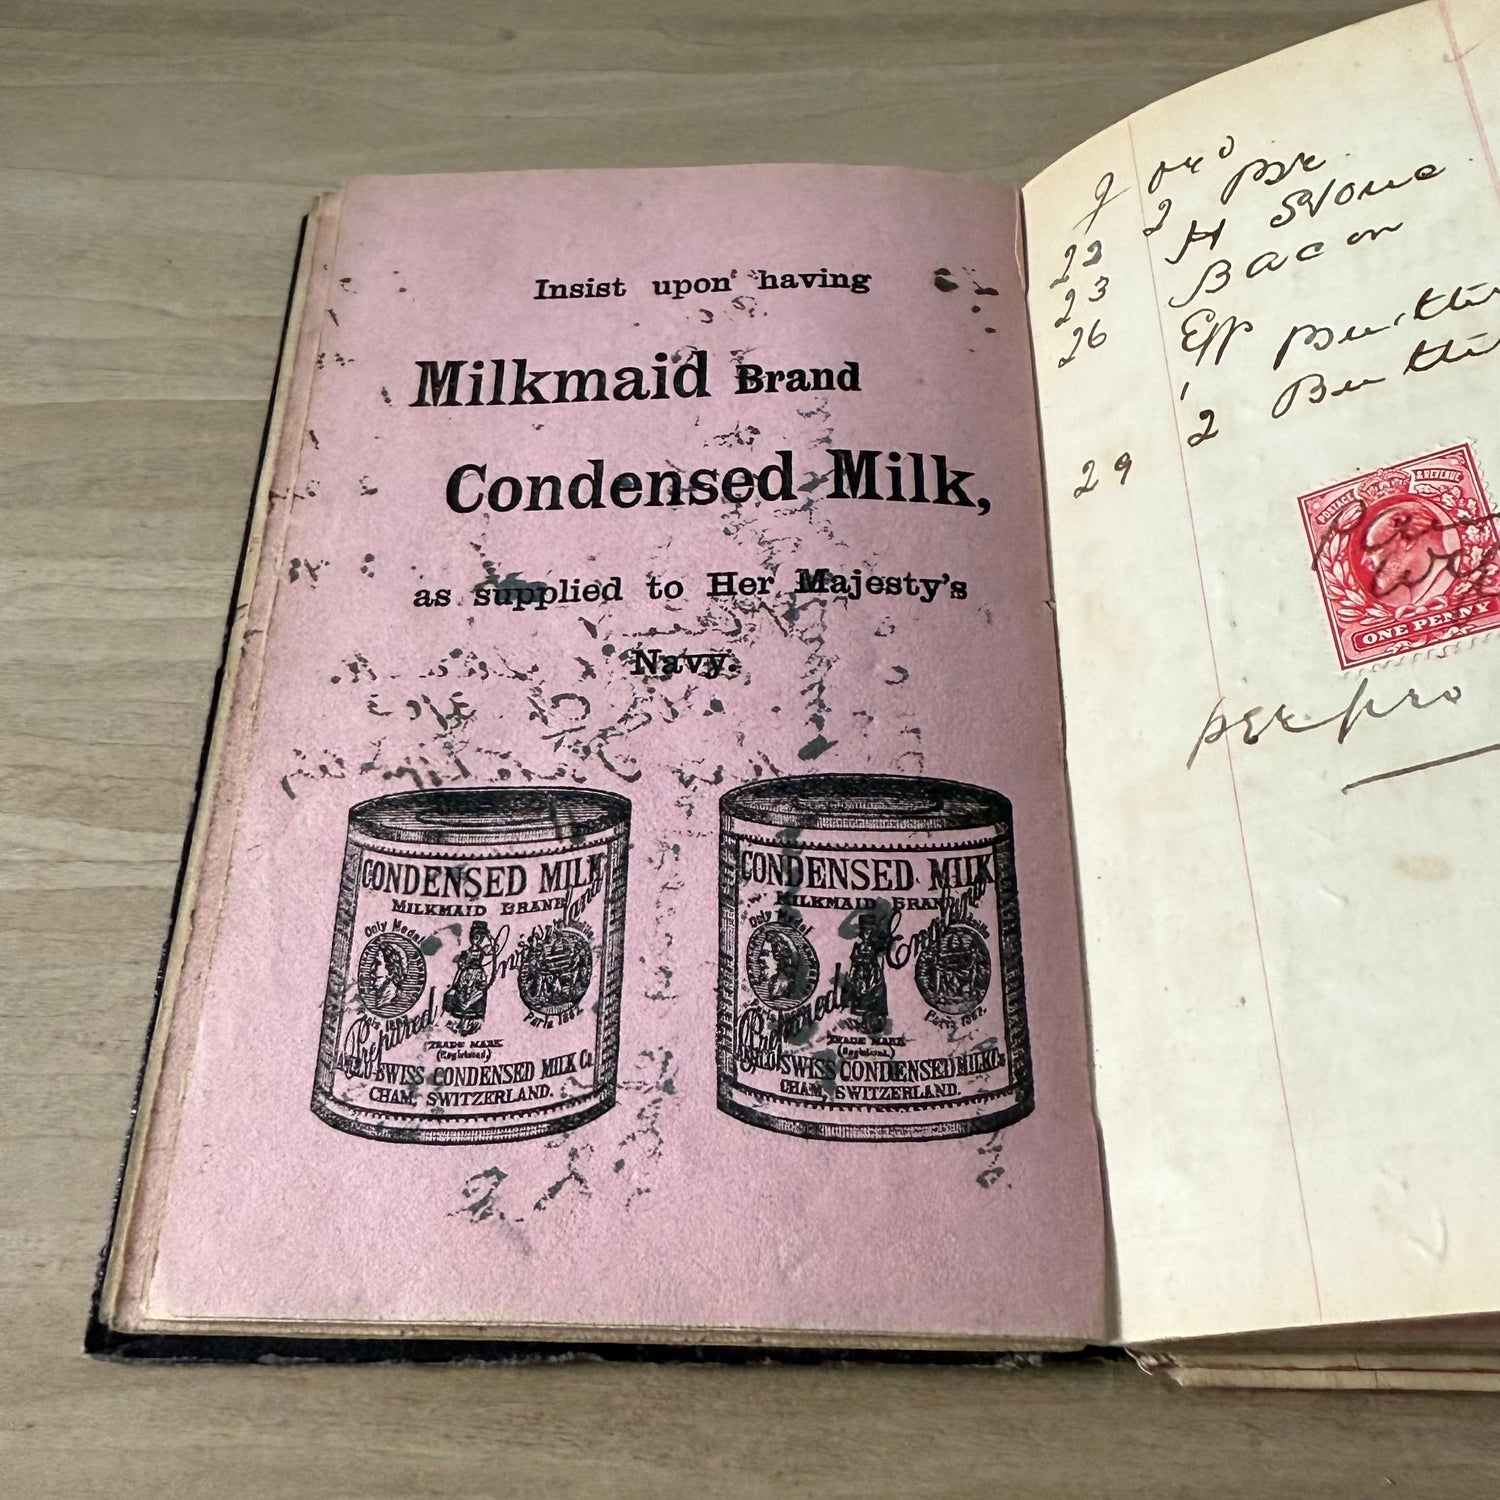 Insist upon having
Milkmaid Brand
Condensed Milk,
as supplied to Her Majesty's
Navy.
CONDENSED MILK
MILKMAID BRAND
Only Medal
Prepared in England
Paris 1867.
TRADE MARK
(Registered.)
ANGLO-SWISS CONDENSED MILK Co.
CHAM, SWITZERLAND.
CONDENSED MILK
MILKMAID BRAND
Only Medal
Prepared in England
Paris 1867.
TRADE MARK
(Registered.)
ANGLO-SWISS CONDENSED MILK Co.
CHAM, SWITZERLAND.
22 H
23 Bacon
26
2
29
POSTAGE & REVENUE
ONE PENNY
per pro